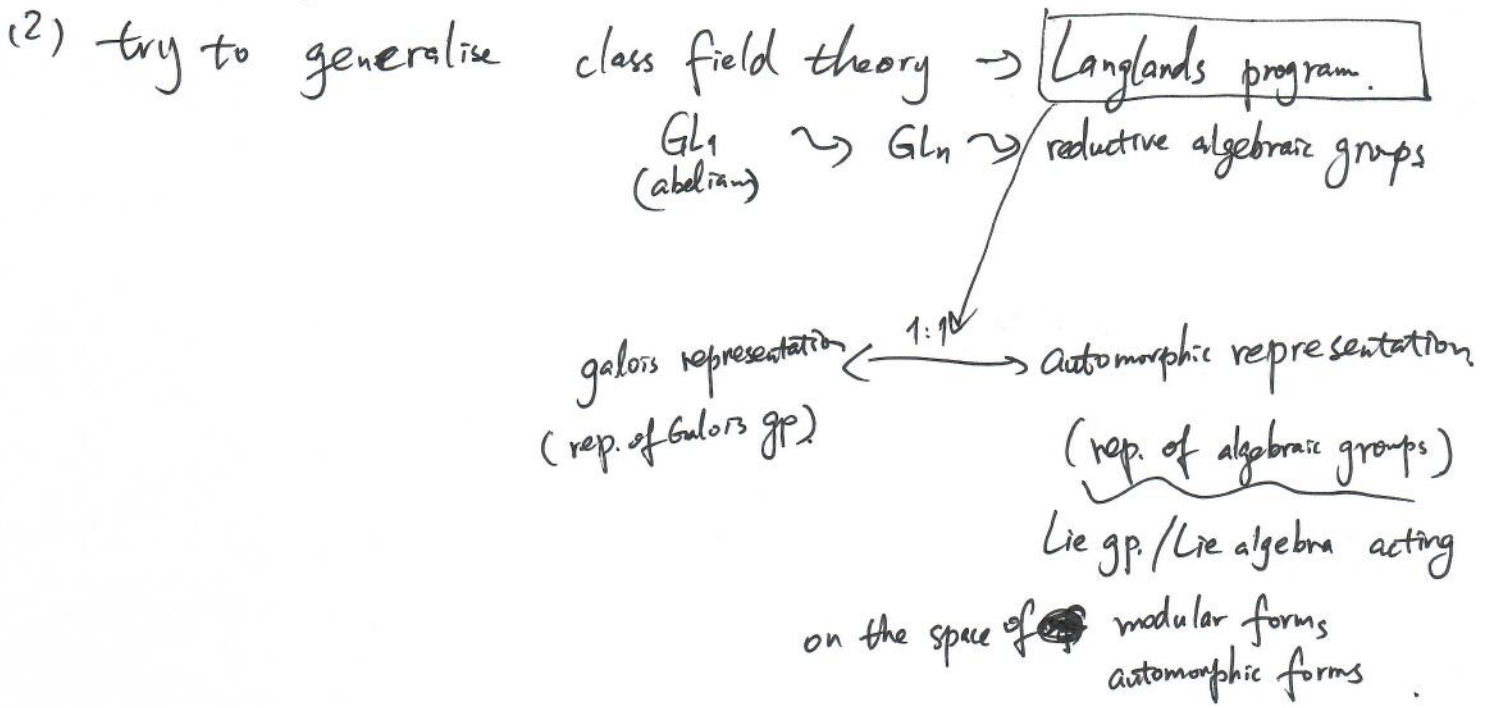 (2) try to generalise class field theory → Langlands program.
GL1 ⇝ GLn ⇝ reductive algebraic groups
(abelian)
1:1
galois representation ↔ automorphic representation
(rep. of Galois gp)
(rep. of algebraic groups)
Lie gp. / Lie algebra acting
on the space of modular forms
automorphic forms.